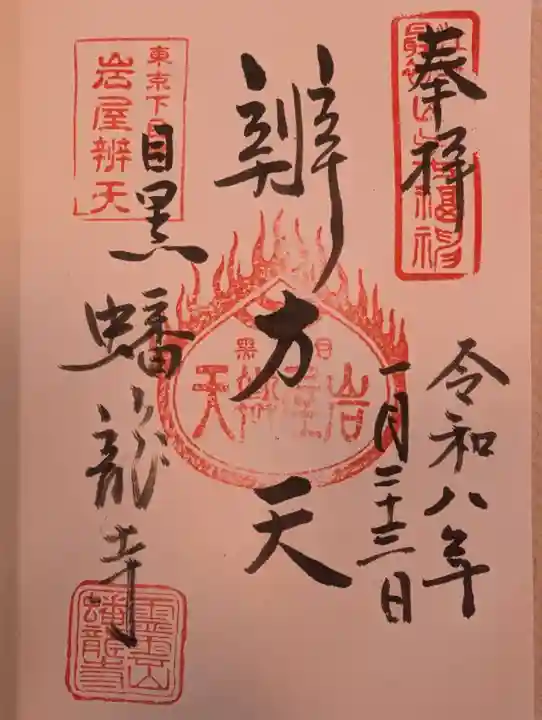 奉拝
山手七福神
令和八年
一月二十三日
辨方天
目黒
岩屋辨天
東京下目
岩屋辨天
目黒蟠龍寺
霊雲山
蟠龍寺